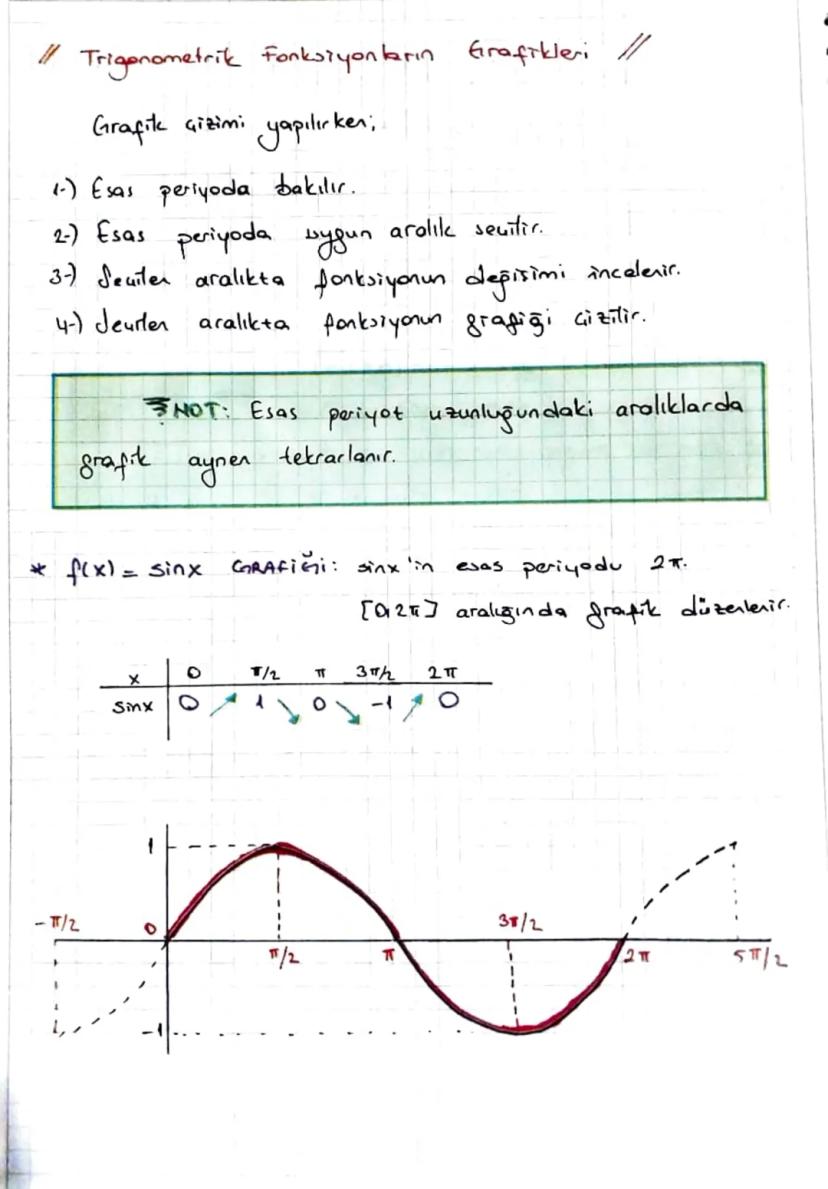 // Trigonometrik Fonksiyonların Grafikleri //
Grafik çizimi yapılırken;
1-) Esas periyoda bakılır.
2-) Esas periyoda uygun aralık seçilir.
3-) Seçilen aralıkta fonksiyonun değişimi incelenir.
4-) Seçilen aralıkta fonksiyonun grafiği çizilir.
NOT: Esas periyot uzunluğundaki aralıklarda
grafik aynen tekrarlanır.
* f(x) = sinx GRAFİĞİ: sinx'in esas periyodu 2π.
[0,2π] aralığında grafik düzenlenir.
x 0 π/2 π 3π/2 2π
sinx 0 ↗ 1 ↘ 0 ↘ -1 ↗ 0
1
-π/2 0 3π/2
π/2 π 2π 5π/2
-1